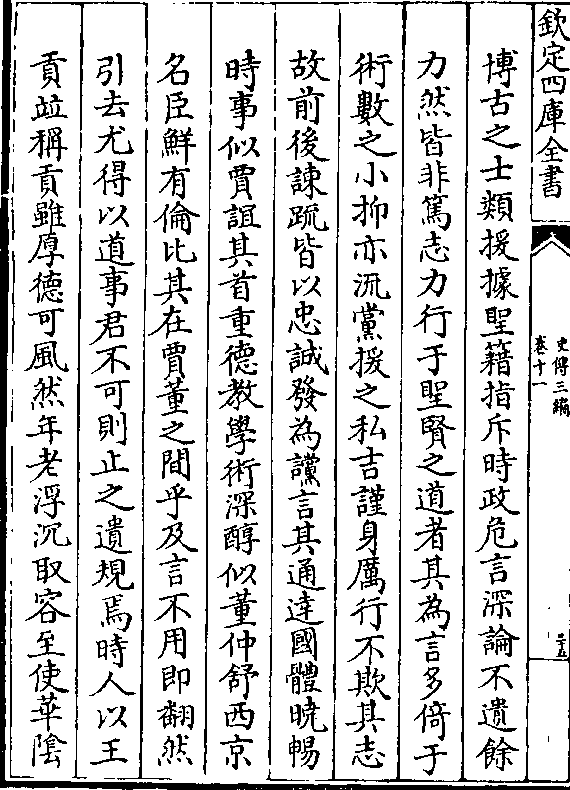 欽定四庫全書
史傳三編
卷十一
二十五
博古之士類援據聖籍指斥時政危言深論不遺餘
力然皆非篤志力行于聖賢之道者其為言多倚于
術數之小抑亦流黨援之私吉謹身厲行不欺其志
故前後諫疏皆以忠誠發為讜言其通達國體曉暢
時事似賈誼其首重德教學術深醇似董仲舒西京
名臣鮮有倫比其在賈董之間乎及言不用即翻然
引去尤得以道事君不可則止之遺規焉時人以王
貢竝稱貢雖厚德可風然年老浮沉取容至使華隂